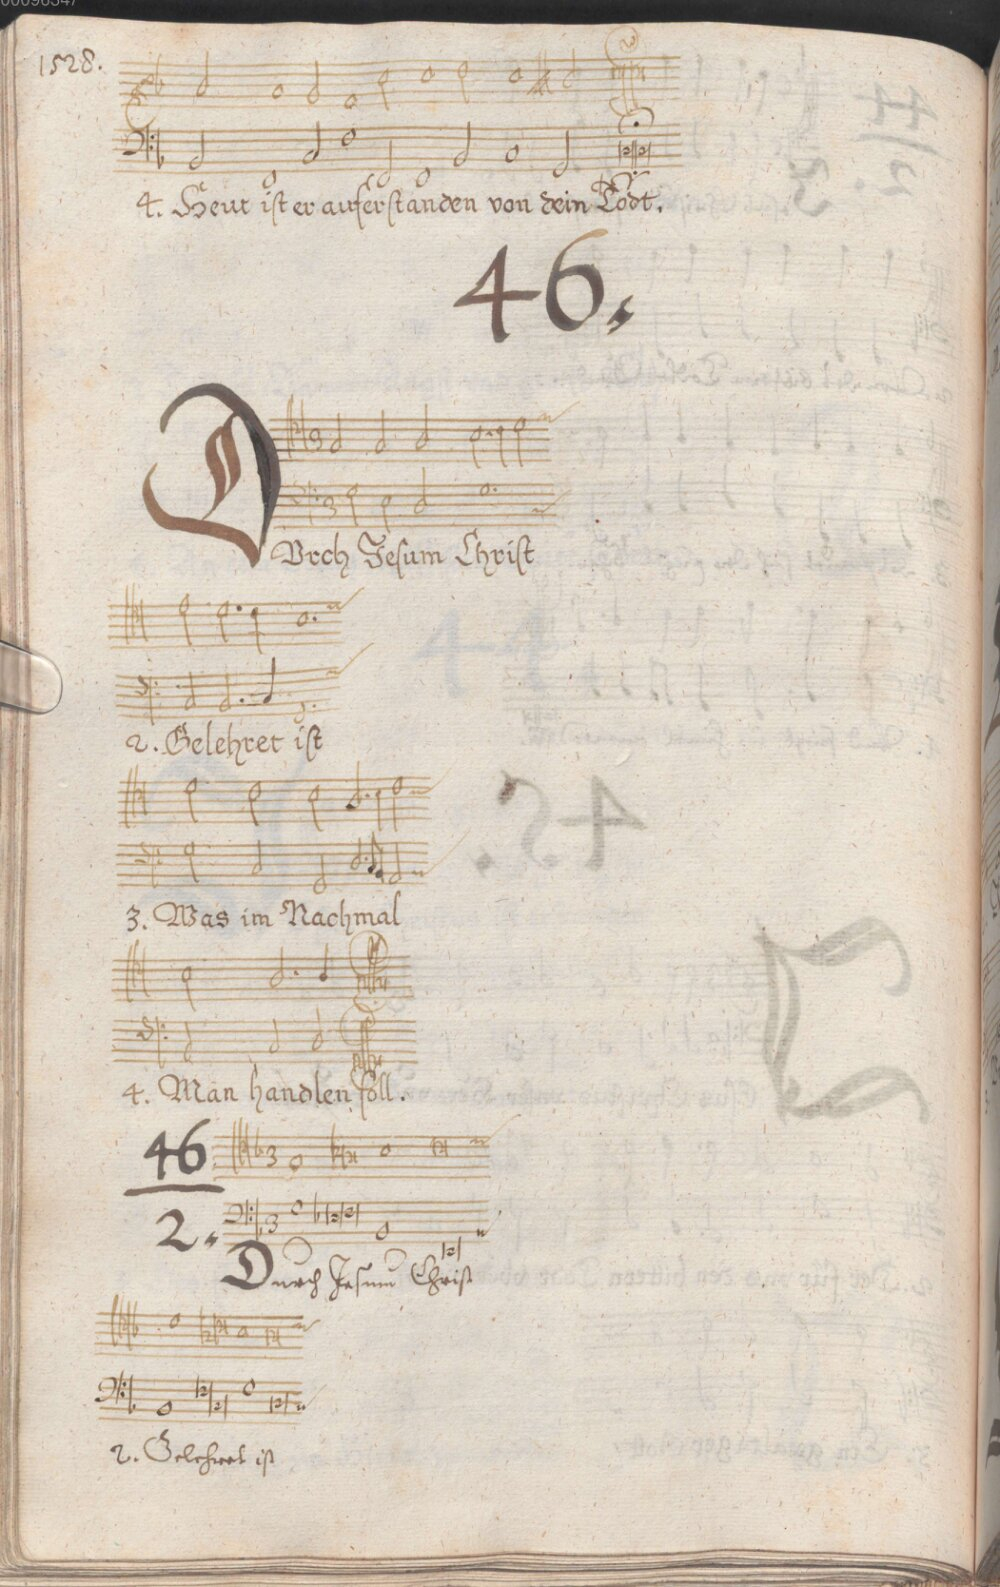 00096347
1528.
4. Heut ist er auferstanden von dem Todt.
46.
DVrch Jesum Christ
2. Gelehret ist
3. Was im Nachmal
4. Man handlen soll.
46
2.
Durch Jesum Christ
2. Gelehret ist